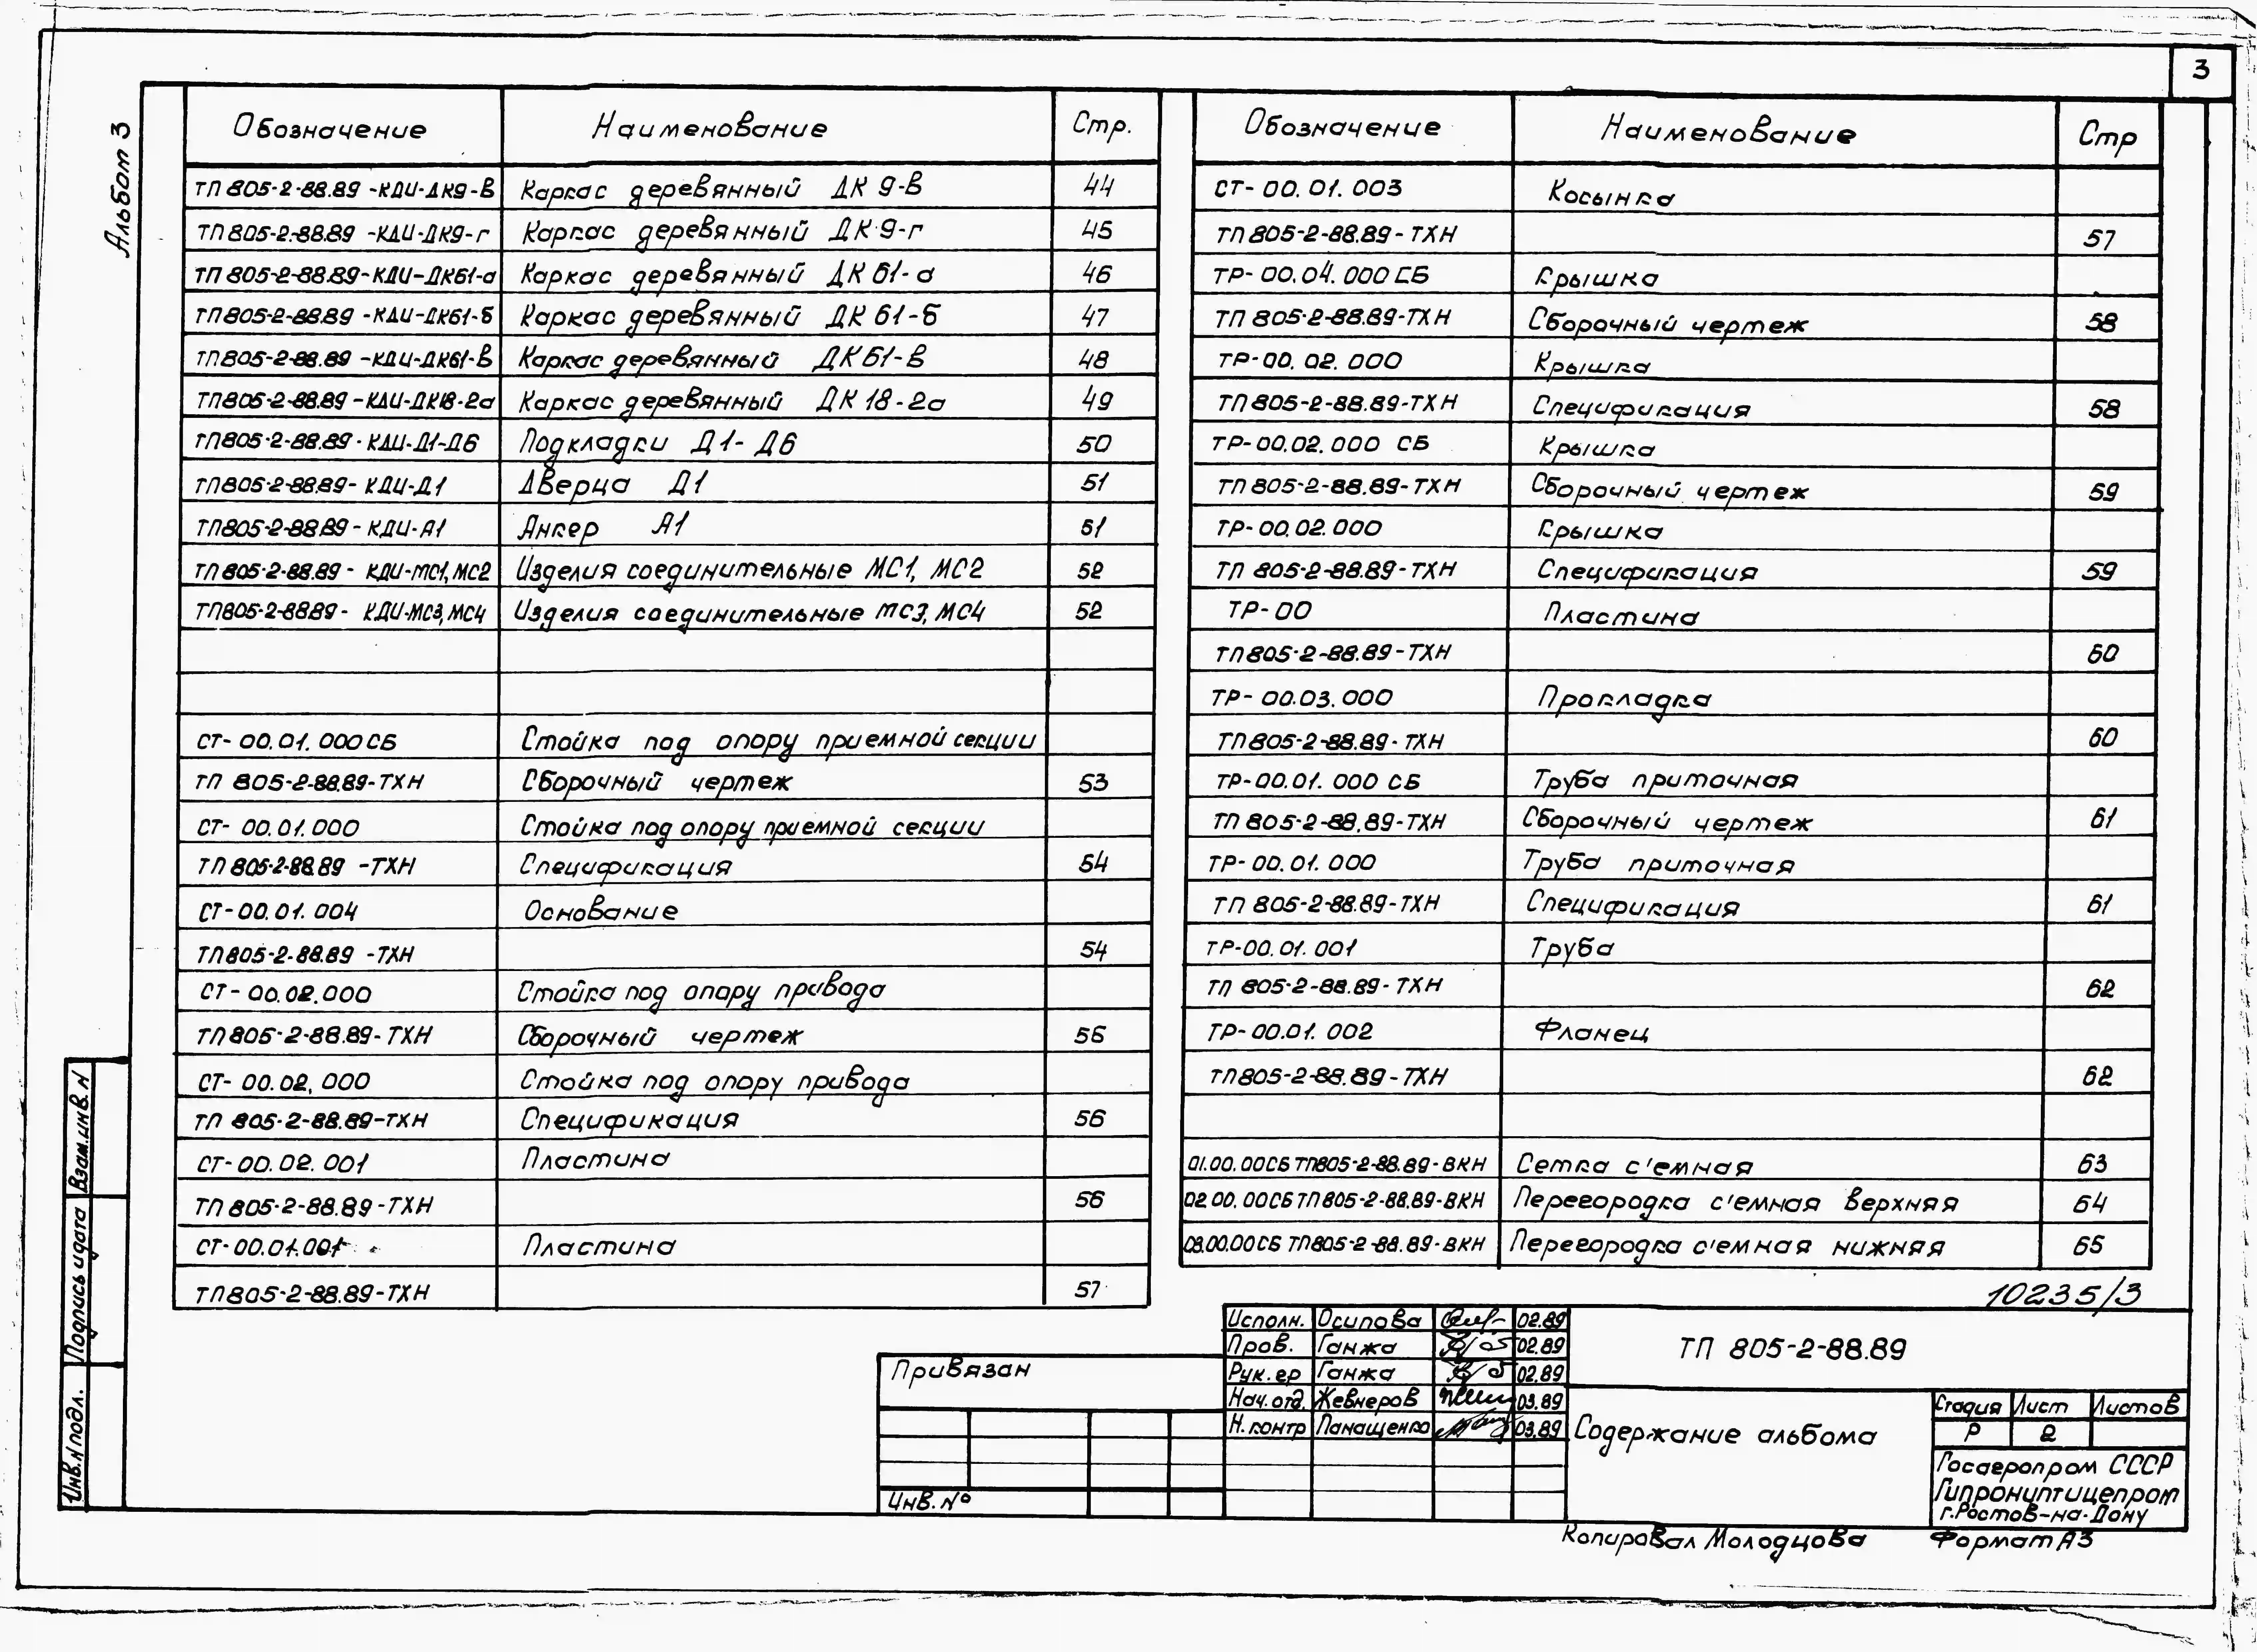 3
Альбом 3
Обозначение Наименование Стр.
ТП 805-2-88.89 -КДИ-ДК9-в Каркас деревянный ДК 9-в 44
ТП 805-2-88.89 -КДИ-ДК9-г Каркас деревянный ДК 9-г 45
ТП 805-2-88.89-КДИ-ДК61-а Каркас деревянный ДК 61-а 46
ТП 805-2-88.89 -КДИ-ДК61-б Каркас деревянный ДК 61-б 47
ТП 805-2-88.89 -КДИ-ДК61-в Каркас деревянный ДК61-в 48
ТП 805-2-88.89 -КДИ-ДК18-2а Каркас деревянный ДК 18-2а 49
ТП 805-2-88.89 - КДИ-Д1-Д6 Подкладки Д1-Д6 50
ТП 805-2-88.89- КДИ-Д1 Дверца Д1 51
ТП 805-2-88.89 - КДИ-А1 Анкер А1 51
ТП 805-2-88.89 - КДИ-МС1, МС2 Изделия соединительные МС1, МС2 52
ТП 805-2-88.89 - КДИ-МС3, МС4 Изделия соединительные МС3, МС4 52
СТ- 00.01.000 СБ Стойка под опору приемной секции
ТП 805-2-88.89-ТХН Сборочный чертеж 53
СТ- 00.01.000 Стойка под опору приемной секции
ТП 805-2-88.89 -ТХН Спецификация 54
СТ-00.01.004 Основание
ТП 805-2-88.89 -ТХН 54
СТ- 00.02.000 Стойка под опору привода
ТП 805-2-88.89-ТХН Сборочный чертеж 56
СТ- 00.02.000 Стойка под опору привода
ТП 805-2-88.89-ТХН Спецификация 56
СТ-00.02.001 Пластина
ТП 805-2-88.89-ТХН 56
СТ-00.01.001 Пластина
ТП 805-2-88.89-ТХН 57
Обозначение Наименование Стр
СТ- 00.01.003 Косынка
ТП 805-2-88.89- ТХН 57
ТР- 00.04.000 СБ Крышка
ТП 805-2-88.89-ТХН Сборочный чертеж 58
ТР-00.02.000 Крышка
ТП 805-2-88.89-ТХН Спецификация 58
ТР-00.02.000 СБ Крышка
ТП 805-2-88.89-ТХН Сборочный чертеж 59
ТР-00.02.000 Крышка
ТП 805-2-88.89-ТХН Спецификация 59
ТР-00 Пластина
ТП 805-2-88.89-ТХН 60
ТР- 00.03.000 Прокладка
ТП 805-2-88.89- ТХН 60
ТР-00.01.000 СБ Труба приточная
ТП 805-2-88.89-ТХН Сборочный чертеж 61
ТР-00.01.000 Труба приточная
ТП 805-2-88.89-ТХН Спецификация 61
ТР-00.01.001 Труба
ТП 805-2-88.89- ТХН 62
ТР-00.01.002 Фланец
ТП 805-2-88.89-ТХН 62
01.00.00СБ ТП805-2-88.89-ВКН Сетка с'емная 63
02.00.00СБ ТП805-2-88.89-ВКН Перегородка с'емная верхняя 64
03.00.00СБ ТП805-2-88.89-ВКН Перегородка с'емная нижняя 65
10235/3
Взам.инв.N
Подпись и дата
Инв.N подл.
Привязан
Инв.№
Исполн. Осипова 02.89
Пров. Ганжа 02.89
Рук.гр Ганжа 02.89
Нач.отд. Жевнеров 03.89
Н.контр Панащенко 03.89
ТП 805-2-88.89
Содержание альбома
Стадия Лист Листов
Р 2
Госагропром СССР
Гипрониптицепром
г.Ростов-на-Дону
Копировал Молодцова Формат А3